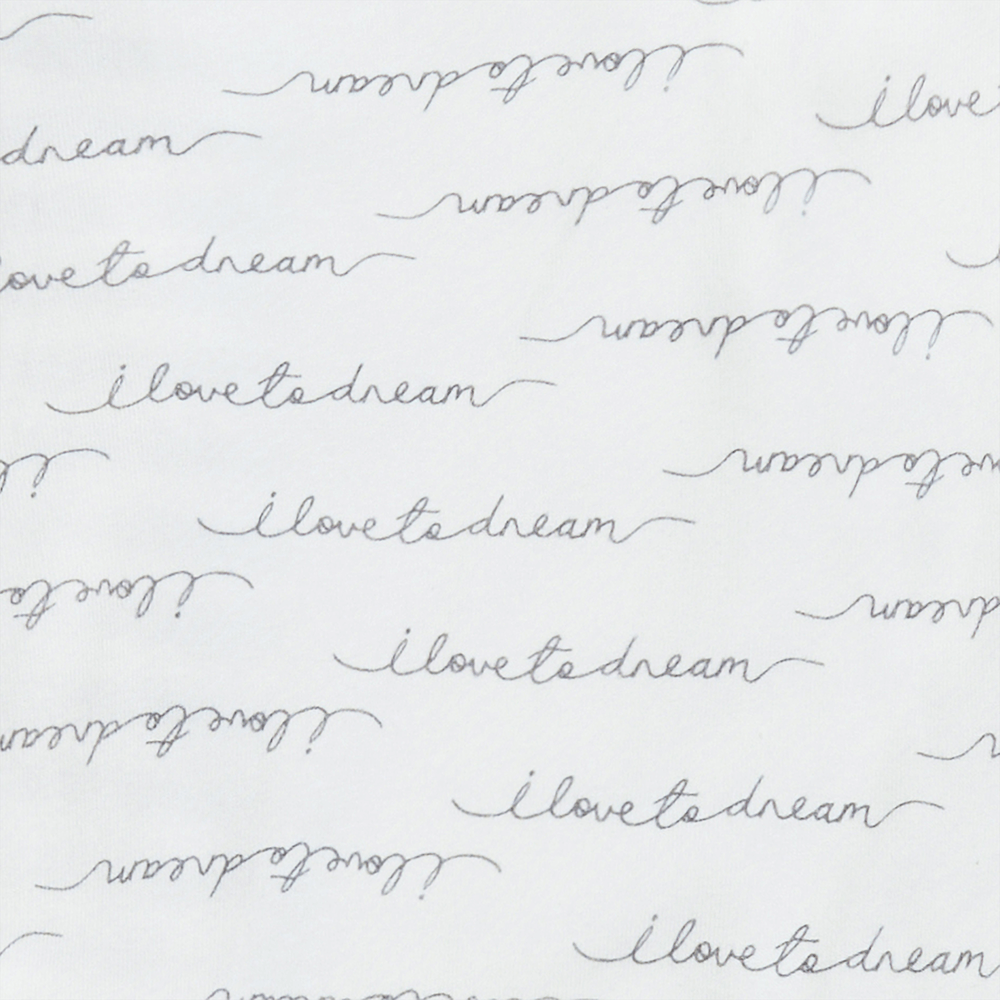 i love to dream
i love
dream
i love to dream
love to dream
i love to dream
i love to dream
ve to dream
i l
i love to dream
i love to
dream
i love to dream
i love to dream
i love to dream
i love to dream
i love to dream